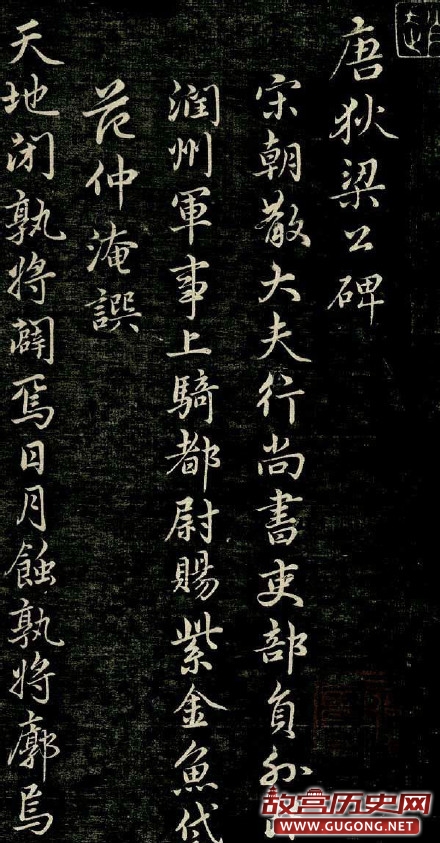 唐狄梁公碑
宋朝散大夫行尚書吏部員外
潤州軍事上騎都尉賜紫金魚袋
范仲淹譔
天地閉孰將闢焉日月蝕孰將廓焉
故宫历史网
WWW.GUGONG.NET